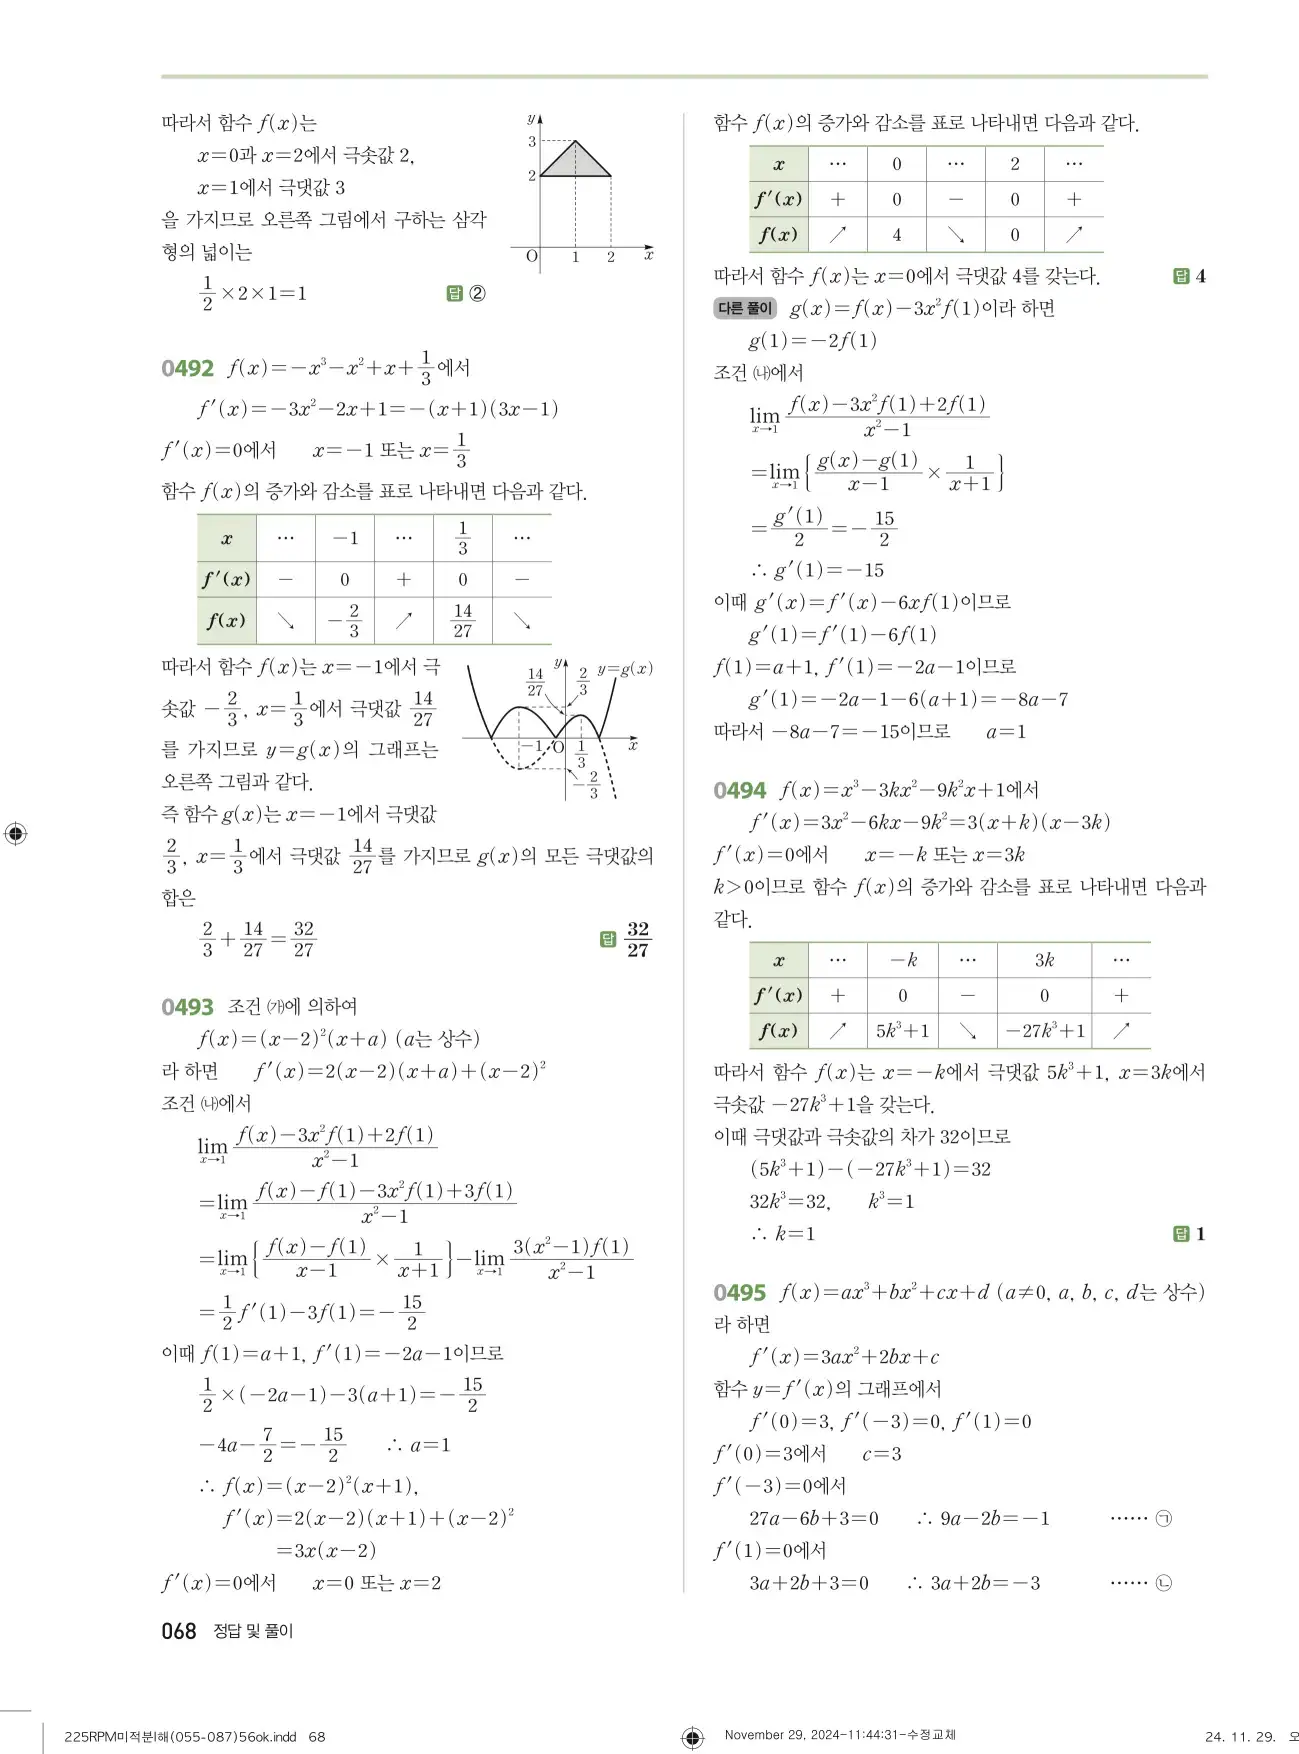 따라서 함수 f(x)는
x=0과 x=2에서 극솟값 2,
x=1에서 극댓값 3
을 가지므로 오른쪽 그림에서 구하는 삼각
형의 넓이는
1/2×2×1=1 답 ②
y
3
2
O 1 2 x
0492 f(x)=-x³-x²+x+1/3에서
f′(x)=-3x²-2x+1=-(x+1)(3x-1)
f′(x)=0에서 x=-1 또는 x=1/3
함수 f(x)의 증가와 감소를 표로 나타내면 다음과 같다.
x … -1 … 1/3 …
f′(x) - 0 + 0 -
f(x) ↘ -2/3 ↗ 14/27 ↘
따라서 함수 f(x)는 x=-1에서 극
솟값 -2/3, x=1/3에서 극댓값 14/27
를 가지므로 y=g(x)의 그래프는
오른쪽 그림과 같다.
y y=g(x)
14/27 2/3
-1 O 1/3 x
-2/3
즉 함수 g(x)는 x=-1에서 극댓값
2/3, x=1/3에서 극댓값 14/27를 가지므로 g(x)의 모든 극댓값의
합은
2/3+14/27=32/27 답 32/27
0493 조건 ㈎에 의하여
f(x)=(x-2)²(x+a) (a는 상수)
라 하면 f′(x)=2(x-2)(x+a)+(x-2)²
조건 ㈏에서
lim x→1 f(x)-3x²f(1)+2f(1) / x²-1
=lim x→1 f(x)-f(1)-3x²f(1)+3f(1) / x²-1
=lim x→1 { f(x)-f(1) / x-1 × 1 / x+1 }-lim x→1 3(x²-1)f(1) / x²-1
=1/2 f′(1)-3f(1)=-15/2
이때 f(1)=a+1, f′(1)=-2a-1이므로
1/2×(-2a-1)-3(a+1)=-15/2
-4a-7/2=-15/2 ∴ a=1
∴ f(x)=(x-2)²(x+1),
f′(x)=2(x-2)(x+1)+(x-2)²
=3x(x-2)
f′(x)=0에서 x=0 또는 x=2
함수 f(x)의 증가와 감소를 표로 나타내면 다음과 같다.
x … 0 … 2 …
f′(x) + 0 - 0 +
f(x) ↗ 4 ↘ 0 ↗
따라서 함수 f(x)는 x=0에서 극댓값 4를 갖는다. 답 4
다른 풀이 g(x)=f(x)-3x²f(1)이라 하면
g(1)=-2f(1)
조건 ㈏에서
lim x→1 f(x)-3x²f(1)+2f(1) / x²-1
=lim x→1 { g(x)-g(1) / x-1 × 1 / x+1 }
=g′(1)/2=-15/2
∴ g′(1)=-15
이때 g′(x)=f′(x)-6xf(1)이므로
g′(1)=f′(1)-6f(1)
f(1)=a+1, f′(1)=-2a-1이므로
g′(1)=-2a-1-6(a+1)=-8a-7
따라서 -8a-7=-15이므로 a=1
0494 f(x)=x³-3kx²-9k²x+1에서
f′(x)=3x²-6kx-9k²=3(x+k)(x-3k)
f′(x)=0에서 x=-k 또는 x=3k
k>0이므로 함수 f(x)의 증가와 감소를 표로 나타내면 다음과
같다.
x … -k … 3k …
f′(x) + 0 - 0 +
f(x) ↗ 5k³+1 ↘ -27k³+1 ↗
따라서 함수 f(x)는 x=-k에서 극댓값 5k³+1, x=3k에서
극솟값 -27k³+1을 갖는다.
이때 극댓값과 극솟값의 차가 32이므로
(5k³+1)-(-27k³+1)=32
32k³=32, k³=1
∴ k=1 답 1
0495 f(x)=ax³+bx²+cx+d (a≠0, a, b, c, d는 상수)
라 하면
f′(x)=3ax²+2bx+c
함수 y=f′(x)의 그래프에서
f′(0)=3, f′(-3)=0, f′(1)=0
f′(0)=3에서 c=3
f′(-3)=0에서
27a-6b+3=0 ∴ 9a-2b=-1 …… ㉠
f′(1)=0에서
3a+2b+3=0 ∴ 3a+2b=-3 …… ㉡
068 정답 및 풀이
225RPM미적분I해(055-087)56ok.indd 68
November 29, 2024-11:44:31-수정교체
24. 11. 29. 오